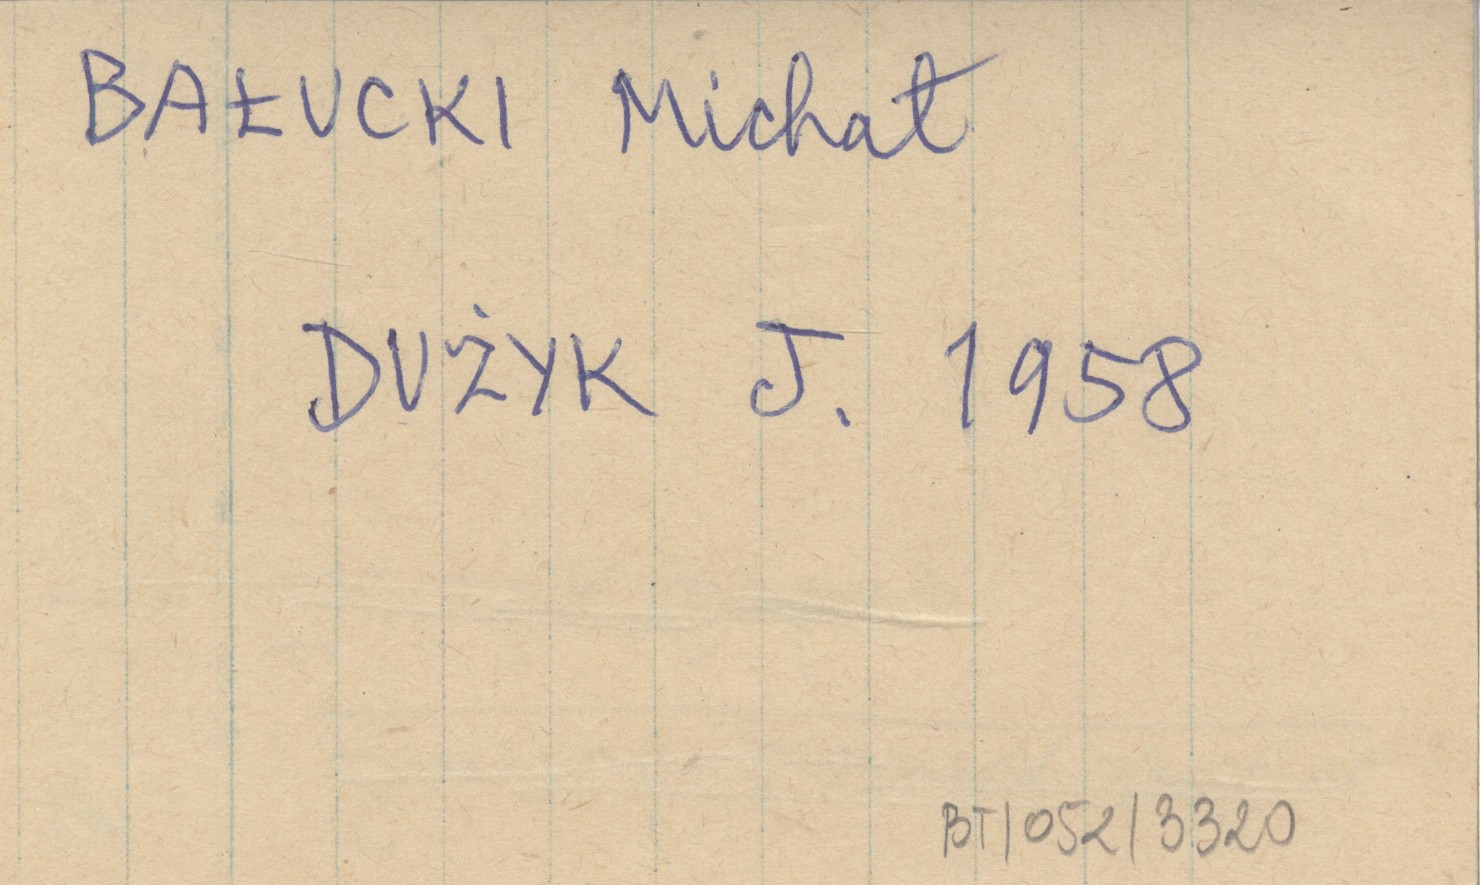 BAŁUCKI Michał
DUŻYK J. 1958
BT/052/3320